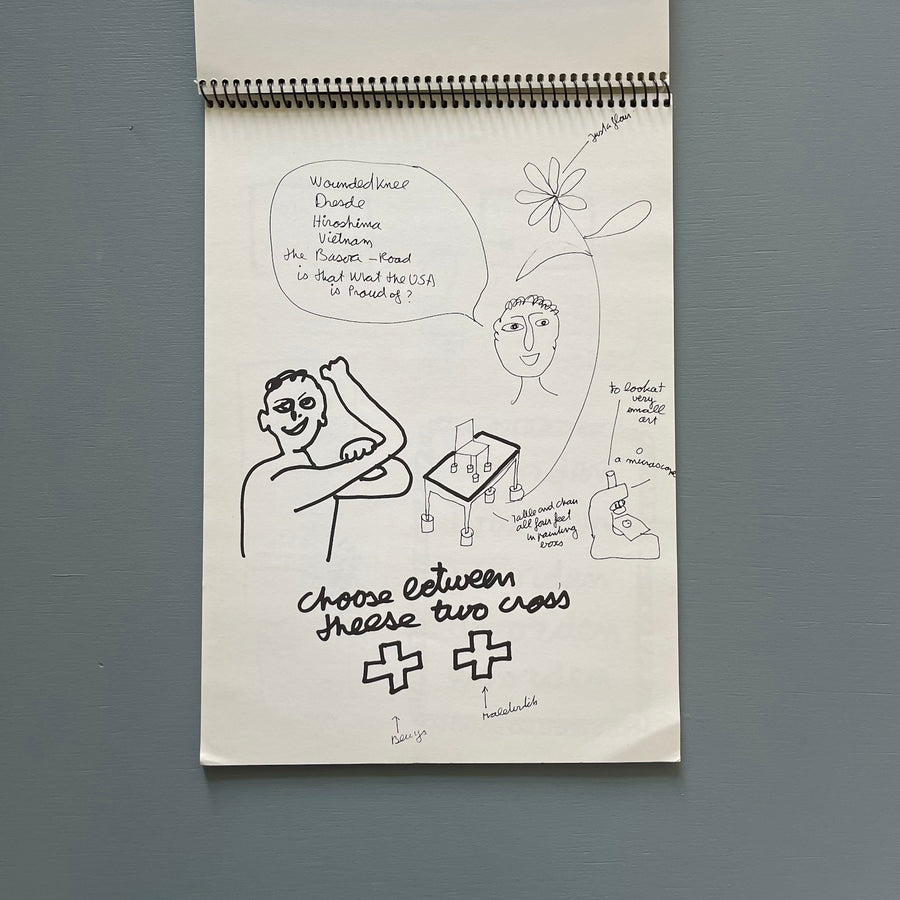 just a flour
Wounded Knee
Dresde
Hiroshima
Vietnam
the Basora - Road
is that what the USA
is Proud of ?
to look at
very
small
art
a microscope
Table and chair
all four feet
in painting
boxs
choose between
theese two cross
Beuys